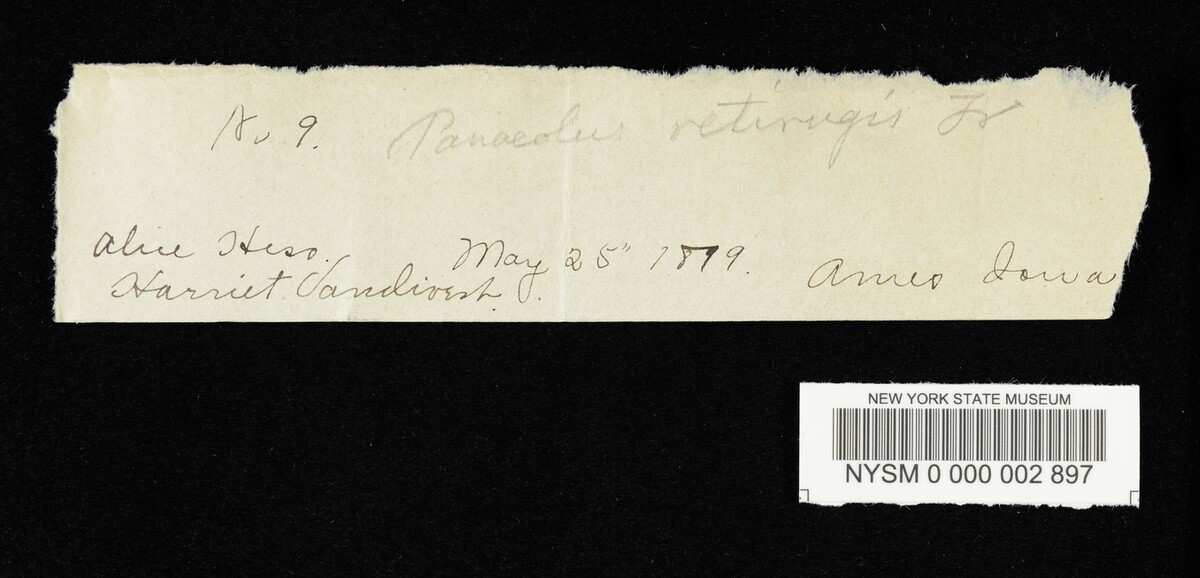 No 9. Panaeolus retirugis Fr
Alice Hess. May 25" 1879. Ames Iowa
Harriet Vandivert.
NEW YORK STATE MUSEUM
NYSM 0 000 002 897